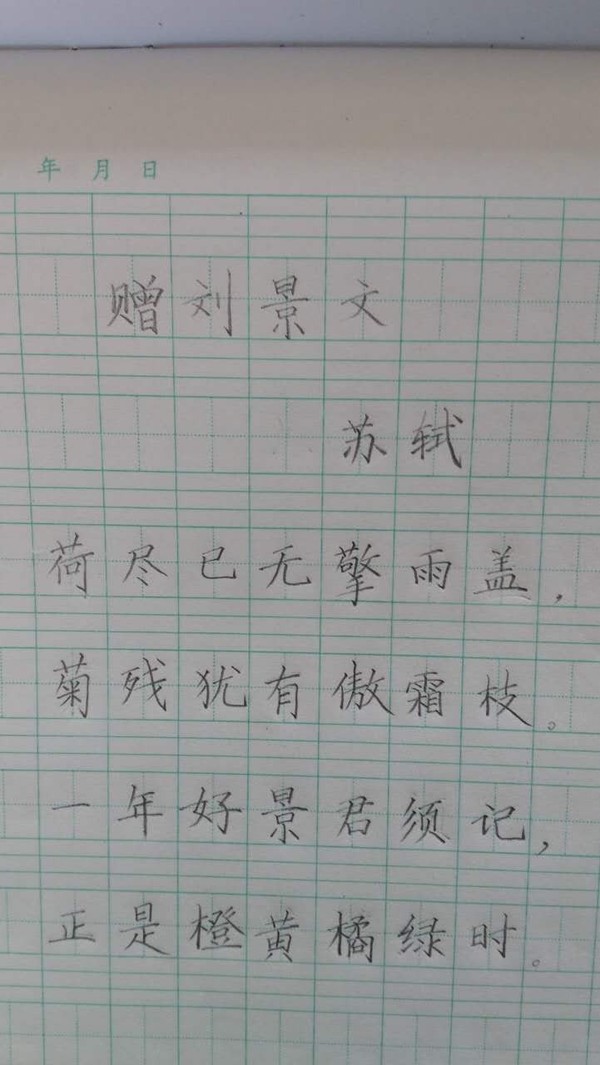 年 月 日
赠刘景文
苏轼
荷尽已无擎雨盖，
菊残犹有傲霜枝。
一年好景君须记，
正是橙黄橘绿时。